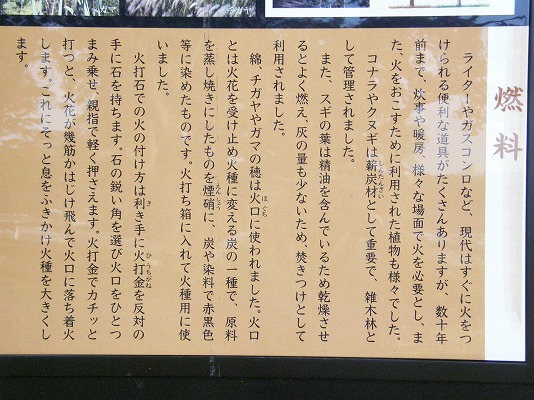 燃料
ライターやガスコンロなど、現代はすぐに火をつ
けられる便利な道具がたくさんありますが、数十年
前まで、炊事や暖房、様々な場面で火を必要とし、ま
た、火をおこすために利用された植物も様々でした。
コナラやクヌギは薪炭材として重要で、雑木林と
して管理されました。
また、スギの葉は精油を含んでいるため乾燥させ
るとよく燃え、灰の量も少ないため、焚きつけとして
利用されました。
綿、チガヤやガマの穂は火口に使われました。火口
とは火花を受け止め火種に変える炭の一種で、原料
を蒸し焼きにしたものを煙硝に、炭や染料で赤黒色
等に染めたものです。火打ち箱に入れて火種用に使
いました。
火打石での火の付け方は利き手に火打金を反対の
手に石を持ちます。石の鋭い角を選び火口をひとつ
まみ乗せ、親指で軽く押さえます。火打金でカチッと
打つと、火花が幾筋かはじけ飛んで火口に落ち着火
します。これにそっと息をふきかけ火種を大きくし
ます。